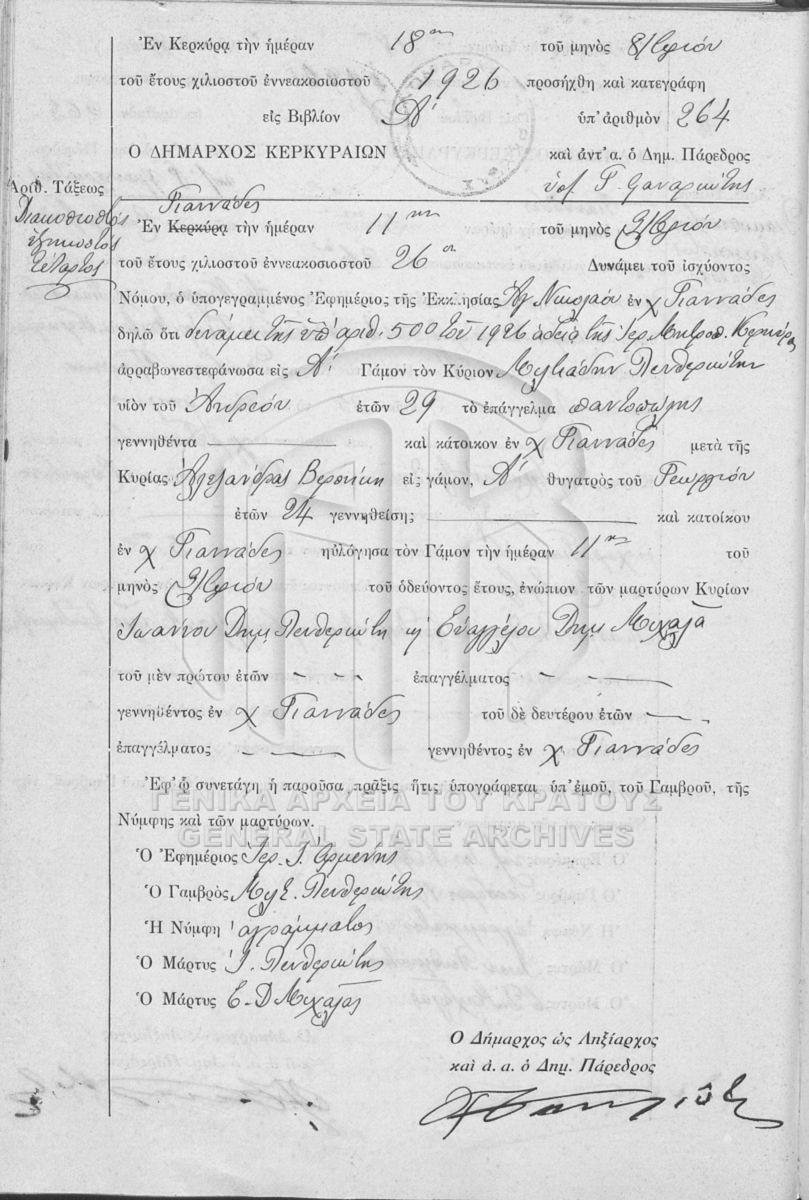 Ἐν Κερκύρᾳ τὴν ἡμέραν 18ην τοῦ μηνὸς 8/βρίου
τοῦ ἔτους χιλιοστοῦ ἐννεακοσιοστοῦ 1926 προσήχθη καὶ κατεγράφη
εἰς Βιβλίον Α' ὑπ' ἀριθμὸν 264
Ο ΔΗΜΑΡΧΟΣ ΚΕΡΚΥΡΑΙΩΝ καὶ ἀντ' α. ὁ Δημ. Πάρεδρος
Ἀριθ. Τάξεως
Διακοσιοστὸς
ἑξηκοστὸς
τέταρτος
Γιαννάδες
Ἐν Κερκύρᾳ τὴν ἡμέραν 11ην τοῦ μηνὸς 8/βρίου
τοῦ ἔτους χιλιοστοῦ ἐννεακοσιοστοῦ 26ου Δυνάμει τοῦ ἰσχύοντος
Νόμου, ὁ ὑπογεγραμμένος Ἐφημέριος τῆς Ἐκκλησίας Ἁγ. Νικολάου ἐν χ. Γιαννάδες
δηλῶ ὅτι δυνάμει τῆς ὑπ' ἀριθ. 500 τοῦ 1926 ἀδείας τῆς Ἱερ. Μητροπ. Κερκύρας
ἀρραβωνεστεφάνωσα εἰς Α' Γάμον τὸν Κύριον Μιλτιάδην Πενθερικώτην
υἱὸν τοῦ Ἀνδρέου ἐτῶν 29 τὸ ἐπάγγελμα παντοπώλης
γεννηθέντα καὶ κάτοικον ἐν χ. Γιαννάδες μετὰ τῆς
Κυρίας Ἀλεξάνδρας εἰς γάμον, Α' θυγατρὸς τοῦ Γεωργίου
ἐτῶν 24 γεννηθείσης καὶ κατοίκου
ἐν χ. Γιαννάδες ηὐλόγησα τὸν Γάμον τὴν ἡμέραν 11ην τοῦ
μηνὸς 8/βρίου τοῦ ὁδεύοντος ἔτους, ἐνώπιον τῶν μαρτύρων Κυρίων
Ἰωάννου Δημ. Πενθερικώτη κ' Εὐαγγέλου Δημ. Μιχαλᾶ
τοῦ μὲν πρώτου ἐτῶν ἐπαγγέλματος
γεννηθέντος ἐν χ. Γιαννάδες τοῦ δὲ δευτέρου ἐτῶν
ἐπαγγέλματος γεννηθέντος ἐν χ. Γιαννάδες
Ἐφ' ᾧ συνετάγη ἡ παροῦσα πρᾶξις ἥτις ὑπογράφεται ὑπ' ἐμοῦ, τοῦ Γαμβροῦ, τῆς
Νύμφης καὶ τῶν μαρτύρων.
ΓΕΝΙΚΑ ΑΡΧΕΙΑ ΤΟΥ ΚΡΑΤΟΥΣ
GENERAL STATE ARCHIVES
Ὁ Ἐφημέριος Ἱερ. Ἰ.
Ὁ Γαμβρὸς Μιλτ. Πενθερικώτης
Ἡ Νύμφη ἀγράμματος
Ὁ Μάρτυς Ἰ. Πενθερικώτης
Ὁ Μάρτυς Ε. Δ Μιχαλᾶς
Ὁ Δήμαρχος ὡς Ληξίαρχος
καὶ ἀ. α. ὁ Δημ. Πάρεδρος